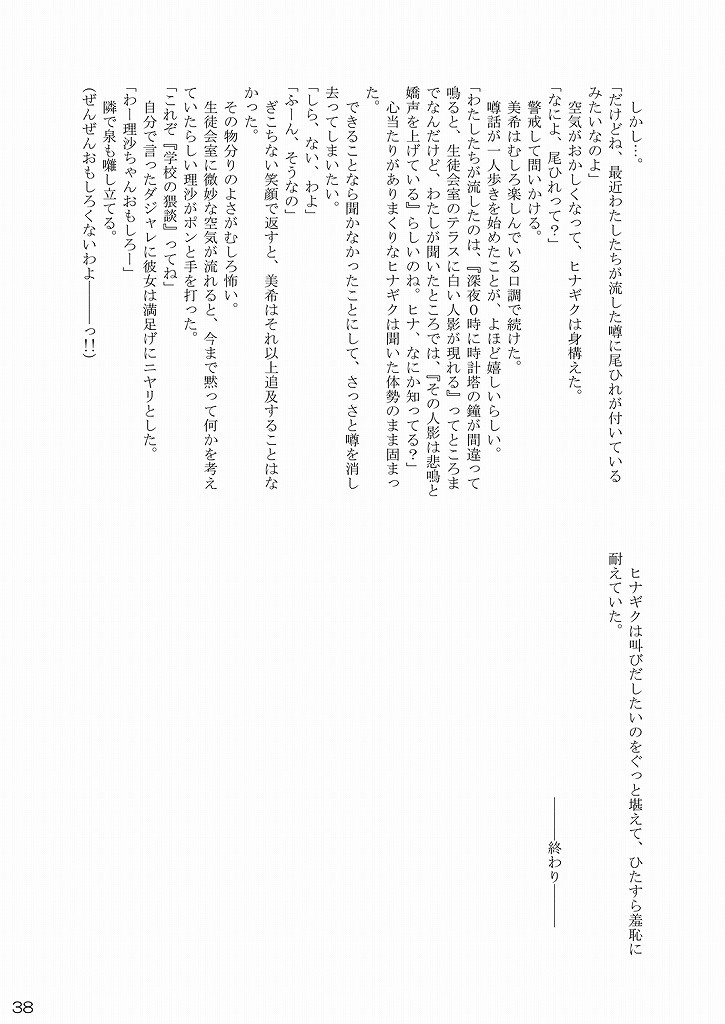 しかし…。
「だけどね、最近わたしたちが流した噂に尾ひれが付いている
みたいなのよ」
空気がおかしくなって、ヒナギクは身構えた。
「なによ、尾ひれって？」
警戒して問いかける。
美希はむしろ楽しんでいる口調で続けた。
噂話が一人歩きを始めたことが、よほど嬉しいらしい。
「わたしたちが流したのは、『深夜０時に時計塔の鐘が間違って
鳴ると、生徒会室のテラスに白い人影が現れる』ってところま
でなんだけど、わたしが聞いたところでは、『その人影は悲鳴と
嬌声を上げている』らしいのね。ヒナ、なにか知ってる？」
心当たりがありまくりなヒナギクは聞いた体勢のまま固まっ
た。
できることなら聞かなかったことにして、さっさと噂を消し
去ってしまいたい。
「しら、ない、わよ」
「ふーん、そうなの」
ぎこちない笑顔で返すと、美希はそれ以上追及することはな
かった。
その物分りのよさがむしろ怖い。
生徒会室に微妙な空気が流れると、今まで黙って何かを考え
ていたらしい理沙がポンと手を打った。
「これぞ『学校の猥談』ってね」
自分で言ったダジャレに彼女は満足げにニヤリとした。
「わー理沙ちゃんおもしろー」
隣で泉も囃し立てる。
(ぜんぜんおもしろくないわよ――――っ!!)
ヒナギクは叫びだしたいのをぐっと堪えて、ひたすら羞恥に
耐えていた。
――――終わり――――
38